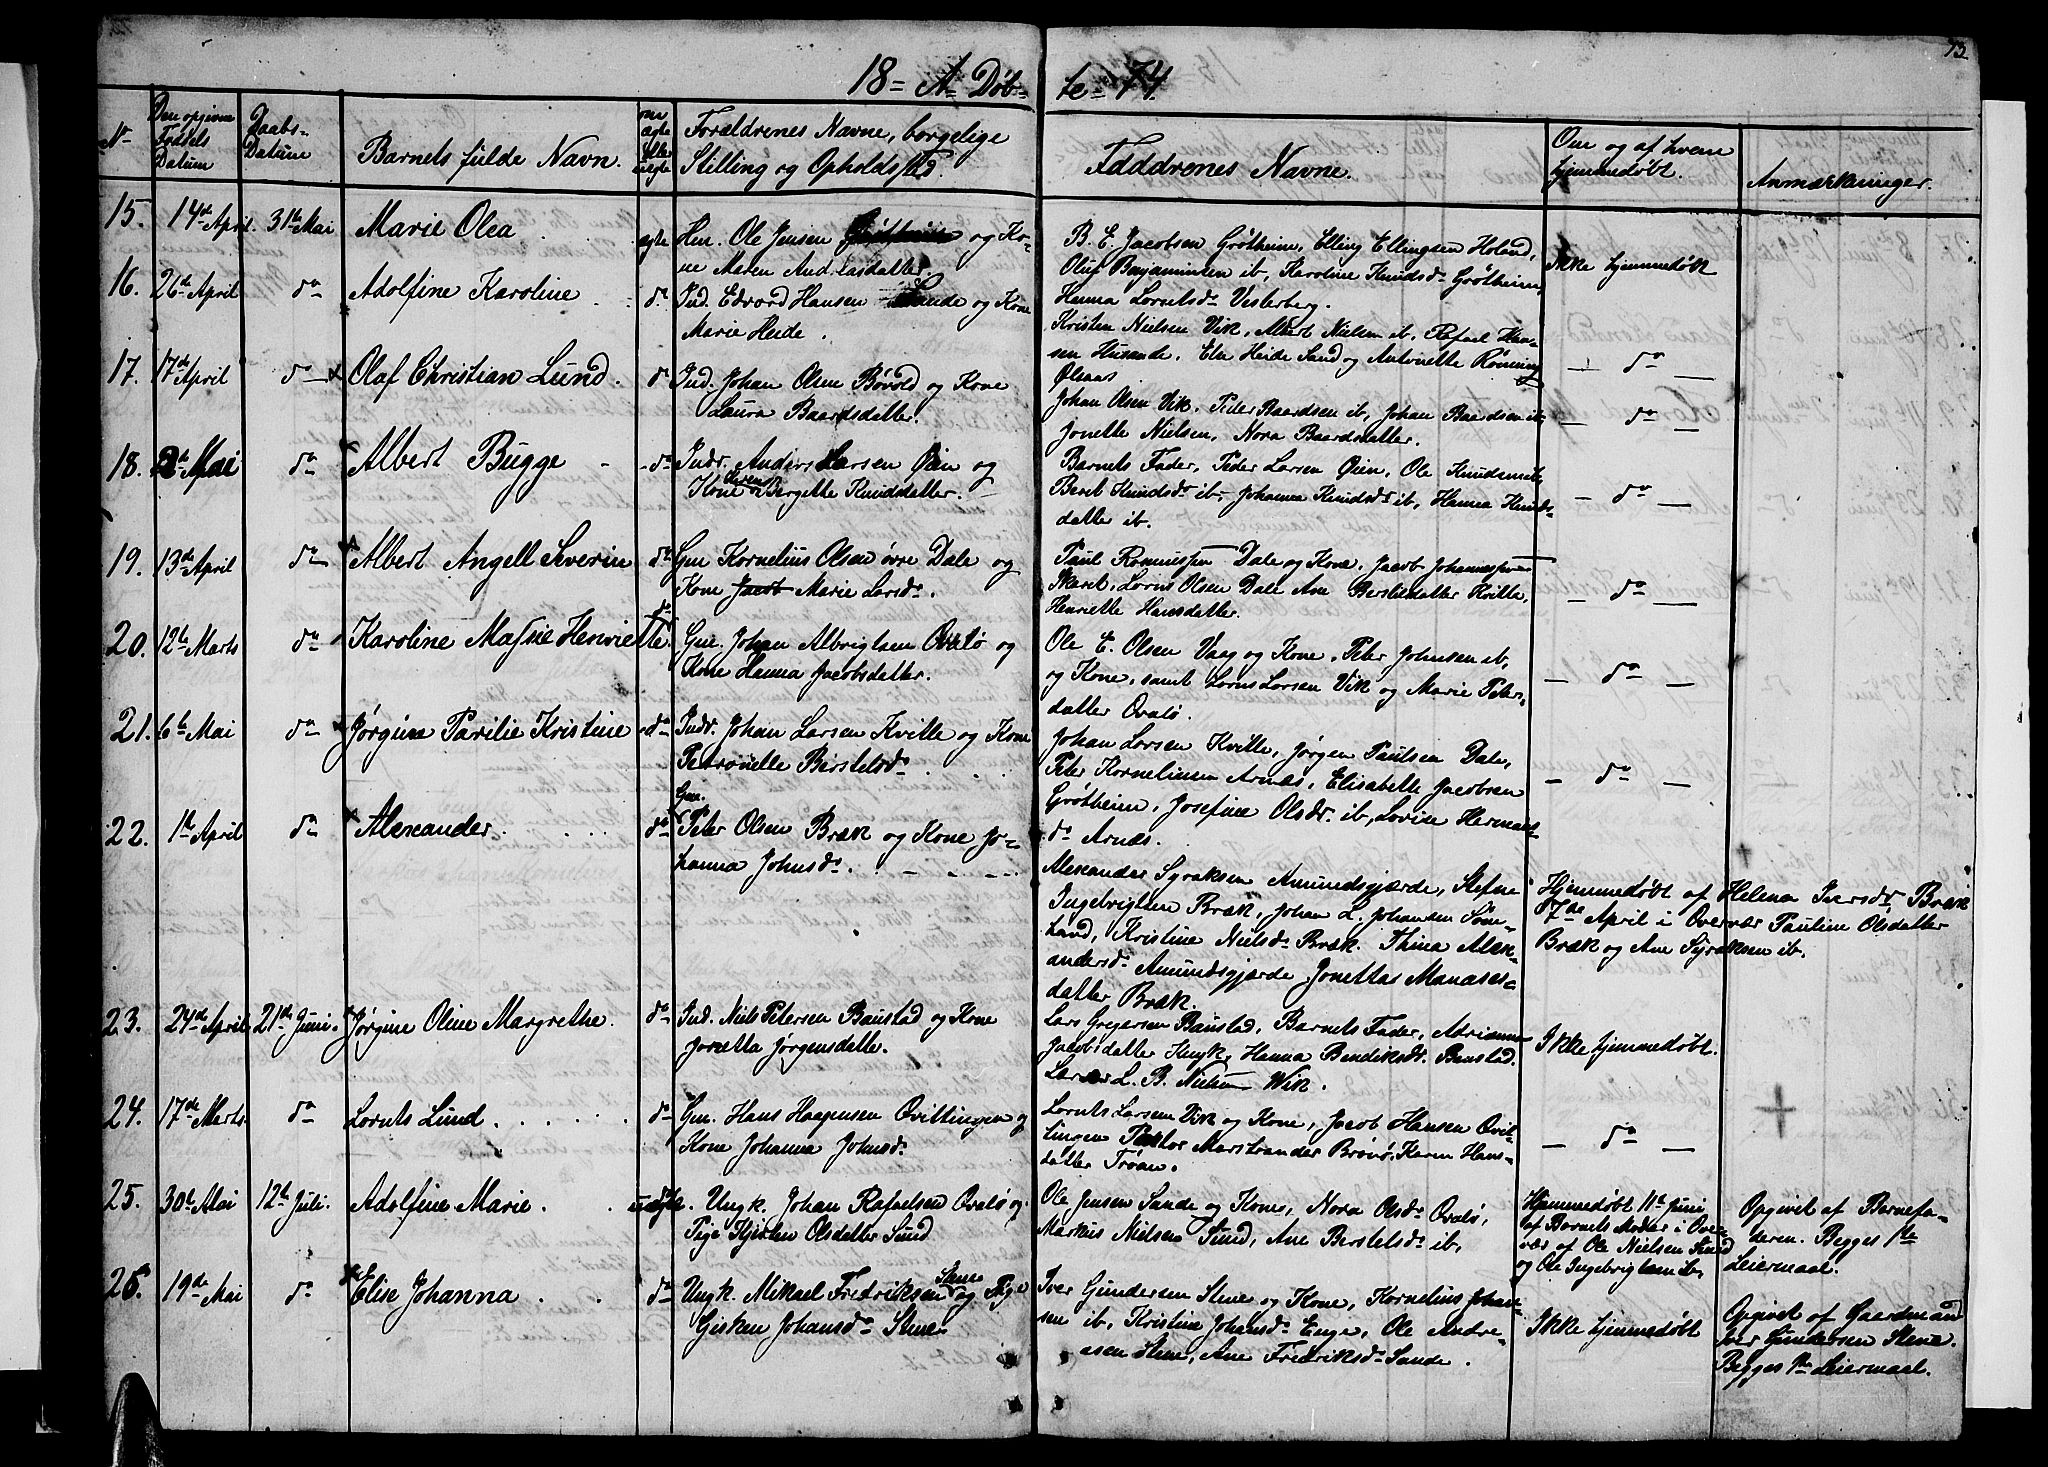 73
18= A. Døb= te= 74.
No
Den opgivne Fødsels Datum
Daabs- Datum
Barnets fulde Navn.
om ægte eller uægte
Forældrenes Navne, borgelige Stilling og Opholdssted.
Fadderenes Navne.
Om og af hvem hjemmedøbt.
Anmærkninger.
15. 14de April. 31te Mai Marie Olea . . ægte Gm. Ole Jensen og Ko-
ne Maren Andreasdatter.
B. E. Jacobsen Grøtheim, Elling Ellingsen Holand,
Oluf Benjaminsen ib, Karoline Knudsdr Grøtheim,
Hanna Lorntsdr Vesterberg.
Ikke hjemmedøbt
16. 26de April do Adolfine Karoline . do Ind. Edvard Hansen Sande og Kone
Marie Heide.
Kristen Nielsen Vik, Albert Nielsen ib, Rafael Han-
sen Husande, Else Heide Sand og Antonette Rønning
Ølsaas
— do —
17. 17de April do x Olaf Christian Lund. do Ind. Johan Olsen Bøvold og Kone
Laura Baardsdatter.
Johan Olsen Vik, Peder Baardsen ib, Johan Baardsen ib
Jonette Nielsen, Nora Baardsdatter.
— do —
18. 2de Mai do x Albert Bugge - do Indr. Anders Larsen Øien og
Kone Bergette Knudsdatter.
Barnets Fader, Peder Larsen Øien, Ole Knudsen ib,
Beret Knudsdr ib, Johanna Knudsdr ib, Hanna Knuds-
datter ib.
— do —
19. 13de April do x Albert Angell Severin do Gm Kornelius Olsen øvre Dale og
Kone Jacob Marie Larsdr.
Paul Rasmussen Dale og Kone, Jacob Johannessen
Skaret, Lorns Olsen Dale Ane Berstelsdatter Kville,
Henriette Hansdatter.
— do —
20. 12te Marts do Karoline Magne Henriette. do Gm. Johan Albrigtsen Qvalø og
Kone Hanna Jacobsdatter.
Ole E. Olsen Vaag og Kone, Peter Johnsen ib,
og Kone, samt Lorns Larsen Vik og Marie Peter-
datter Qvalø.
— do —
21. 6te Mai do x Jørgine Parilie Kristine do Indr. Johan Larsen Kville og Kone
Petronelle Berstelsdr. . .
Johan Larsen Kville, Jørgen Paulsen Dale,
Peter Korneliusen Arnæs, Elisabette Jacobsen
Grøtheim, Josefine Olsdr ib, Lovise Hermans-
dr Arnæs.
— do —
22. 1te April do x Alexander. . . . . do Gm.
Peter Olsen Bræk og Kone Jo-
hanna Johnsdr. . — . — . . .
Alexander Syraksen Amundsgjærde, Stefne
Ingebrigtsen Bræk, Johan L. Johansen Søm-
hand, Kristine Nielsdr Bræk. Thina Alex-
andersdr Amundsgjærde, Jonettas Manases-
datter Bræk.
Hjemmedøbt af Helena Iversdr. Bræk
7de April i Overvær Pauline Olsdatter
Bræk og Ane Syraksen ib.
23. 24de April 21de Juni. Jørgine Oline Margrethe. do Ind. Niels Petersen Baustad og Kone
Jonetta Jørgensdatte.
Lars Gregersen Baustad, Barnets Fader, Adrianna
Jacobsdatter Knyk, Hanna Bendiksdr. Baustad.
L. B. Nielsen Wik.
Ikke hjemmedøbt.
24. 17de Marts. do Lornts Lund. . . . . . do Gm. Hans Haagensen Qvittingen og
Kone Johanna Johnsdr.
Lornts Larsen Vik og Kone, Jacob Hansen Qvit-
tingen Pastor Marstrander Brønø, Karen Hans-
datter Trøan.
— do —
25. 30te Mai 12te Juli. Adolfine Marie. . . uægte. Ungk. Johan Rafaelsen Qvalø og
Pige Kjersten Olsdatter Sund
Ole Jensen Sande og Kone, Nora Olsdr Qvalø,
Markus Nielsen Sund, Ane Berstelsdr ib.
Hjemmedøbt 11te Juni
af Barnets Moder i Over-
vær af Ole Nielsen Sund
og Ole Ingebrigtsen ib.
Opgivet af Barnefa-
deren. Begges 1te
Leiermaal.
26. 19de Mai do x Elise Johanna . . do Ungk. Mikael Fredriksen Stene og Pige
Gisken Johansdr Stene
Iver Gundersen Stene og Kone, Kornelius Johan-
sen ib, Kristine Johansdr Enge, Ole Andre-
asen Stene, Ane Fredriksdr Sande.
Ikke hjemmedøbt
Opgivet af Gaardmand
Iver Gundersen Stene.
Begges 1te Leiermaal.